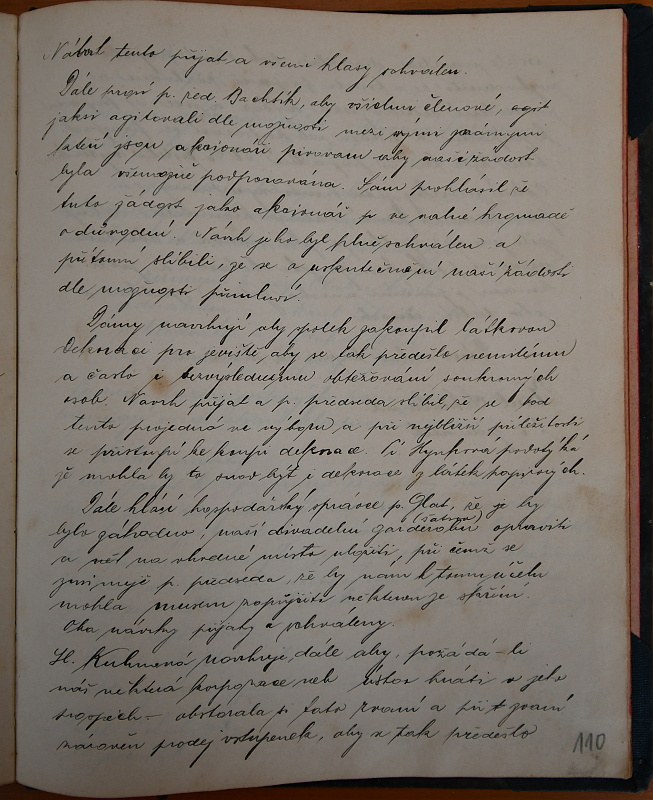 Návrh tento přijat a všemi hlasy schválen.
Dále prosí p. řed. Bachtík, aby všichni členové, agit
jaksi agitovali dle možnosti mezi svými známými
kteří jsou akcionáři pivovaru aby naší žádost
byla všemožně podporována. Sám prohlásil že
tuto žádost jako akcionář p ve valné hromadě
odůvodní. Návrh jeho byl plně schválen a
přítomní slíbili, že se o uskutečnění naší žádosti
dle možnosti přimluví.
Dámy navrhují aby spolek zakoupil látkovou
dekoraci pro jeviště, aby se tak předešlo nemilému
a často i bezvýslednému obtěžování soukromých
osob. Návrh přijat a p. předseda slíbil, že se bod
tento projedná ve výboru a při nejbližší příležitosti
se přistoupí ke koupi dekorace. Pí Hynková podotýká
že mohla by to snad být i dekorace z látek papírových.
Dále hlásí hospodářský správce p. Glat, že je by
bylo záhodno naší divadelní garderobu (šatnu) opraviti
a něk na vhodné místo uložiti, při čemž se
zmiňuje p. předseda, že by nám k tomu účelu
mohla museu zapůjčiti některou ze skříní.
Oba návrhy přijaty a schváleny.
Sl. Kuhnová navrhuje dále aby, požádá-li
nás některá korporace neb ústav hráti v jeho
prospěch – obstarala si tato zvaní a při zvaní
zároveň prodej vstupenek, aby se tak předešlo
110